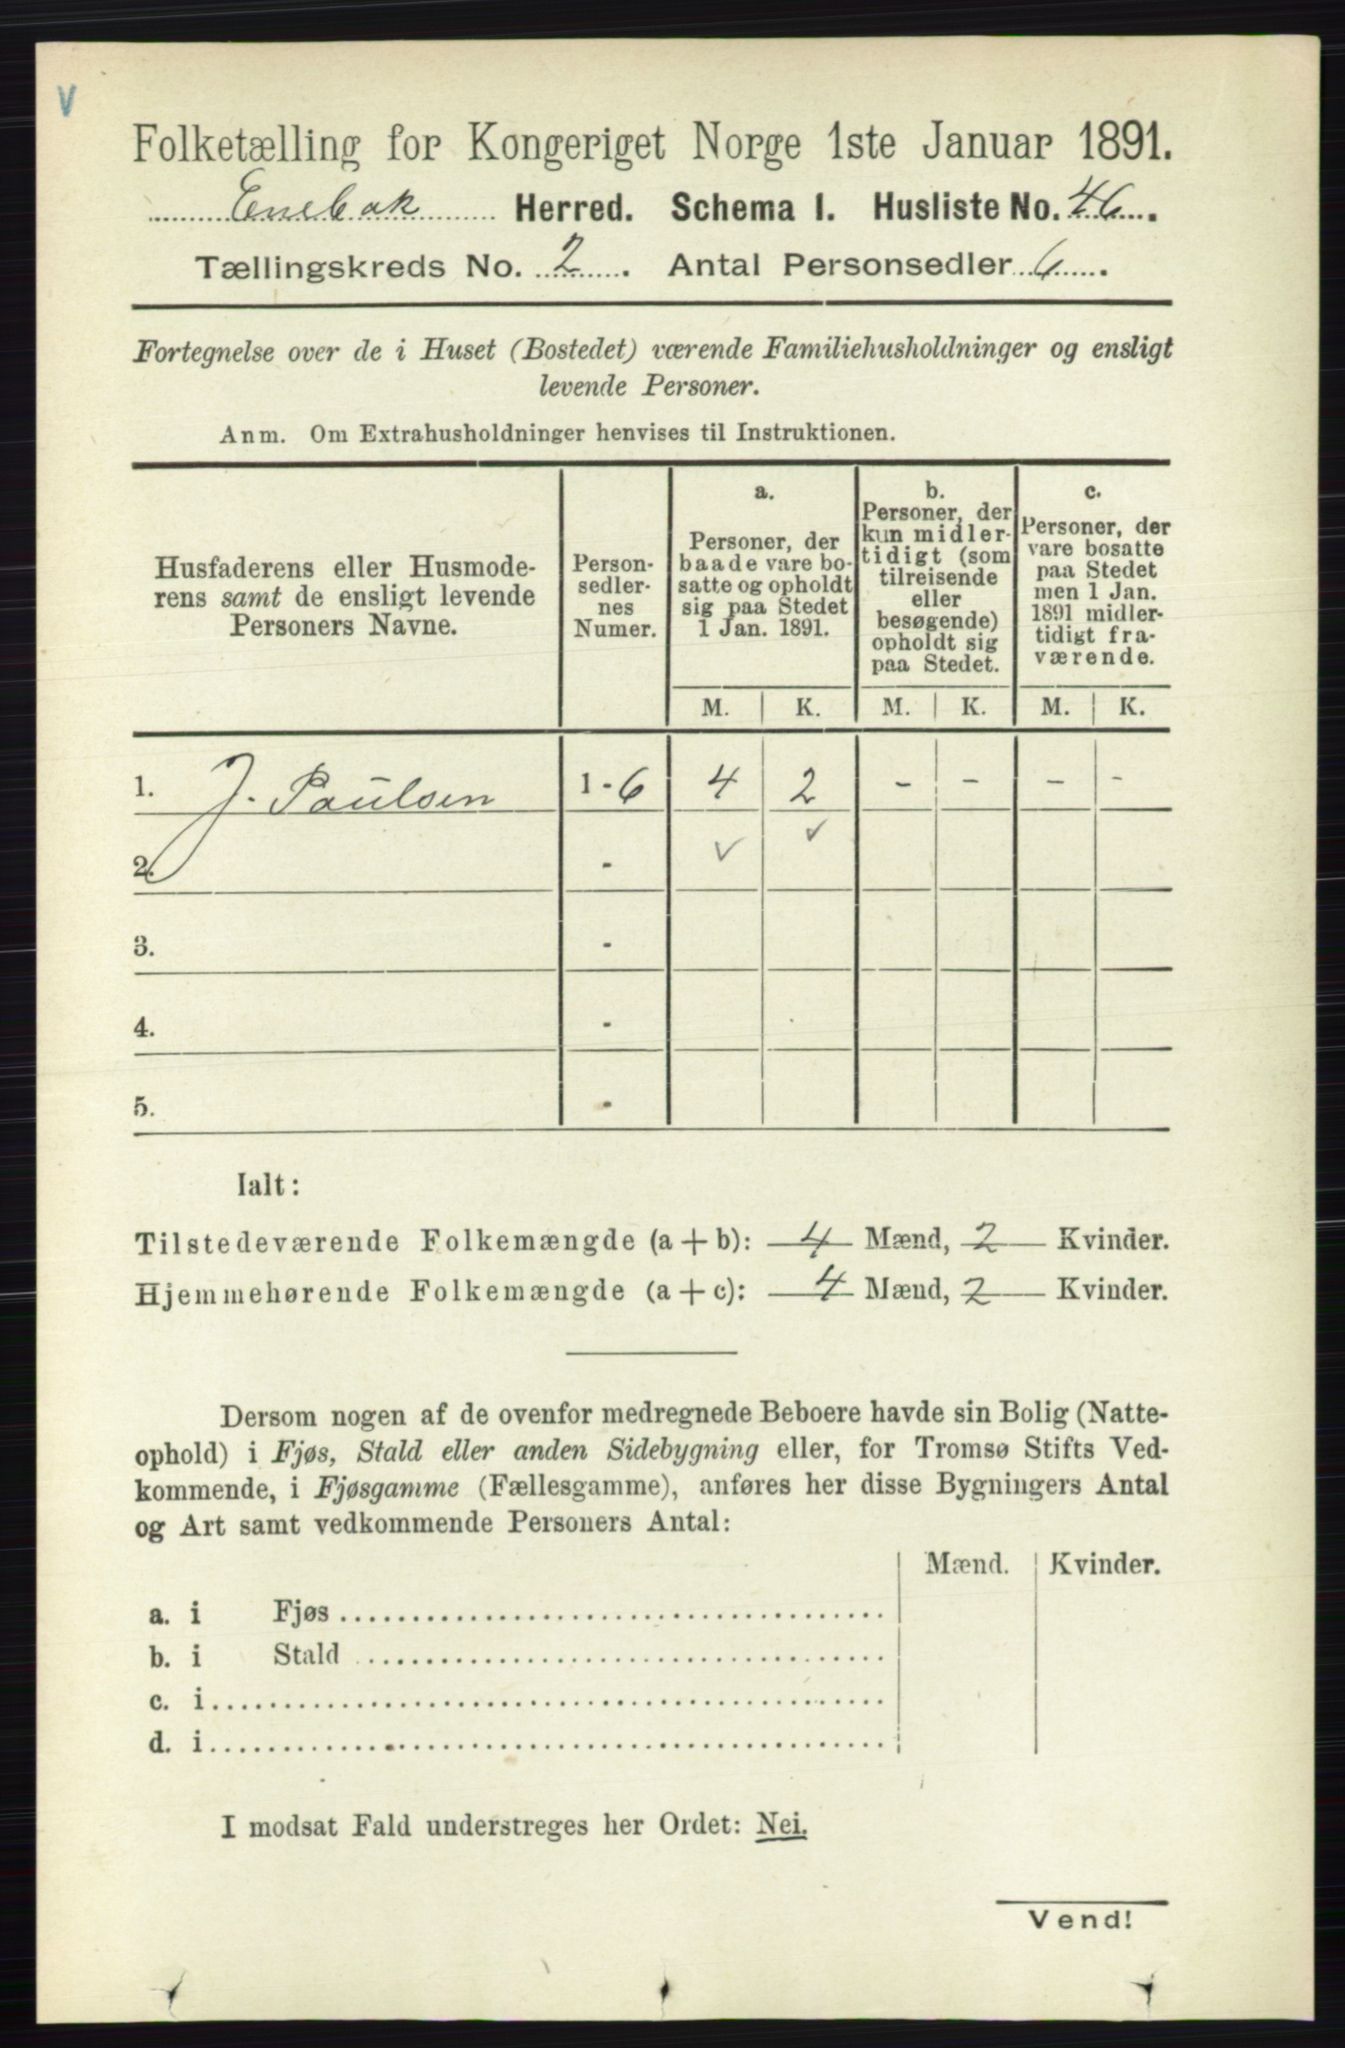 V
Folketælling for Kongeriget Norge 1ste Januar 1891.
Enebak Herred. Schema I. Husliste No. 46.
Tællingskreds No. 2. Antal Personsedler 6.
Fortegnelse over de i Huset (Bostedet) værende Familiehusholdninger og ensligt
levende Personer.
Anm. Om Extrahusholdninger henvises til Instruktionen.
Husfaderens eller Husmode-
rens samt de ensligt levende
Personers Navne.
Person-
sedler-
nes
Numer.
a.
Personer, der
baade vare bo-
satte og opholdt
sig paa Stedet
1 Jan. 1891.
b.
Personer, der
kun midler-
tidigt (som
tilreisende
eller
besøgende)
opholdt sig
paa Stedet.
c.
Personer, der
vare bosatte
paa Stedet
men 1 Jan.
1891 midler-
tidigt fra-
værende.
M. K. M. K. M. K.
1. J. Paulsen 1 - 6 4 2 - - - -
2. - ✓ ✓
3. -
4. -
5. -
Ialt:
Tilstedeværende Folkemængde (a + b): 4 Mænd, 2 Kvinder.
Hjemmehørende Folkemængde (a + c): 4 Mænd, 2 Kvinder.
Dersom nogen af de ovenfor medregnede Beboere havde sin Bolig (Natte-
ophold) i Fjøs, Stald eller anden Sidebygning eller, for Tromsø Stifts Ved-
kommende, i Fjøsgamme (Fællesgamme), anføres her disse Bygningers Antal
og Art samt vedkommende Personers Antal:
Mænd. Kvinder.
a. i Fjøs
b. i Stald
c. i
d. i
I modsat Fald understreges her Ordet: Nei.
Vend!